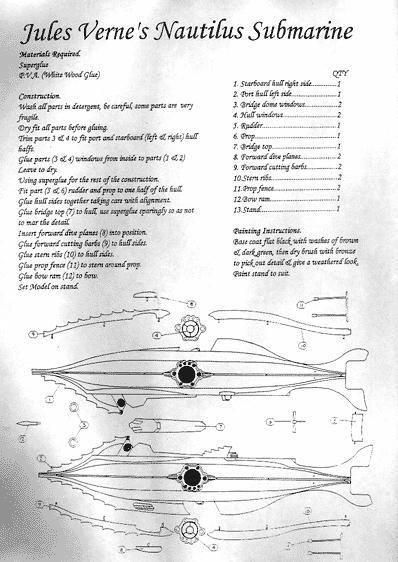 Jules Verne's Nautilus Submarine
Materials Required.
Superglue
P.V.A. (White Wood Glue)
Construction.
Wash all parts in detergent, be careful, some parts are very
fragile.
Dry fit all parts before gluing.
Trim parts 3 & 4 to fit port and starboard (left & right) hull
halfs.
Glue parts (3 & 4) windows from inside to parts (1 & 2)
Leave to dry.
Using superglue for the rest of the construction.
Fit part (5 & 6) rudder and prop to one half of the hull.
Glue hull sides together taking care with alignment.
Glue bridge top (7) to hull, use superglue sparingly so as not
to mar the detail.
Insert forward dive planes (8) into position.
Glue forward cutting barbs (9) to hull sides.
Glue stern ribs (10) to hull sides.
Glue prop fence (11) to stern around prop.
Glue bow ram (12) to bow.
Set Model on stand.
QTY
1. Starboard hull right side............1
2. Port hull left side..................1
3. Bridge dome windows............2
4. Hull windows........................2
5. Rudder.................................1
6. Prop.....................................1
7. Bridge top.............................1
8. Forward dive planes..............2
9. Forward cutting barbs...........2
10. Stern ribs.............................2
11. Prop fence............................2
12. Bow ram..............................1
13. Stand...................................1
Painting Instructions.
Base coat flat black with washes of brown
& dark green, then dry brush with bronze
to pick out detail & give a weathered look.
Paint stand to suit.